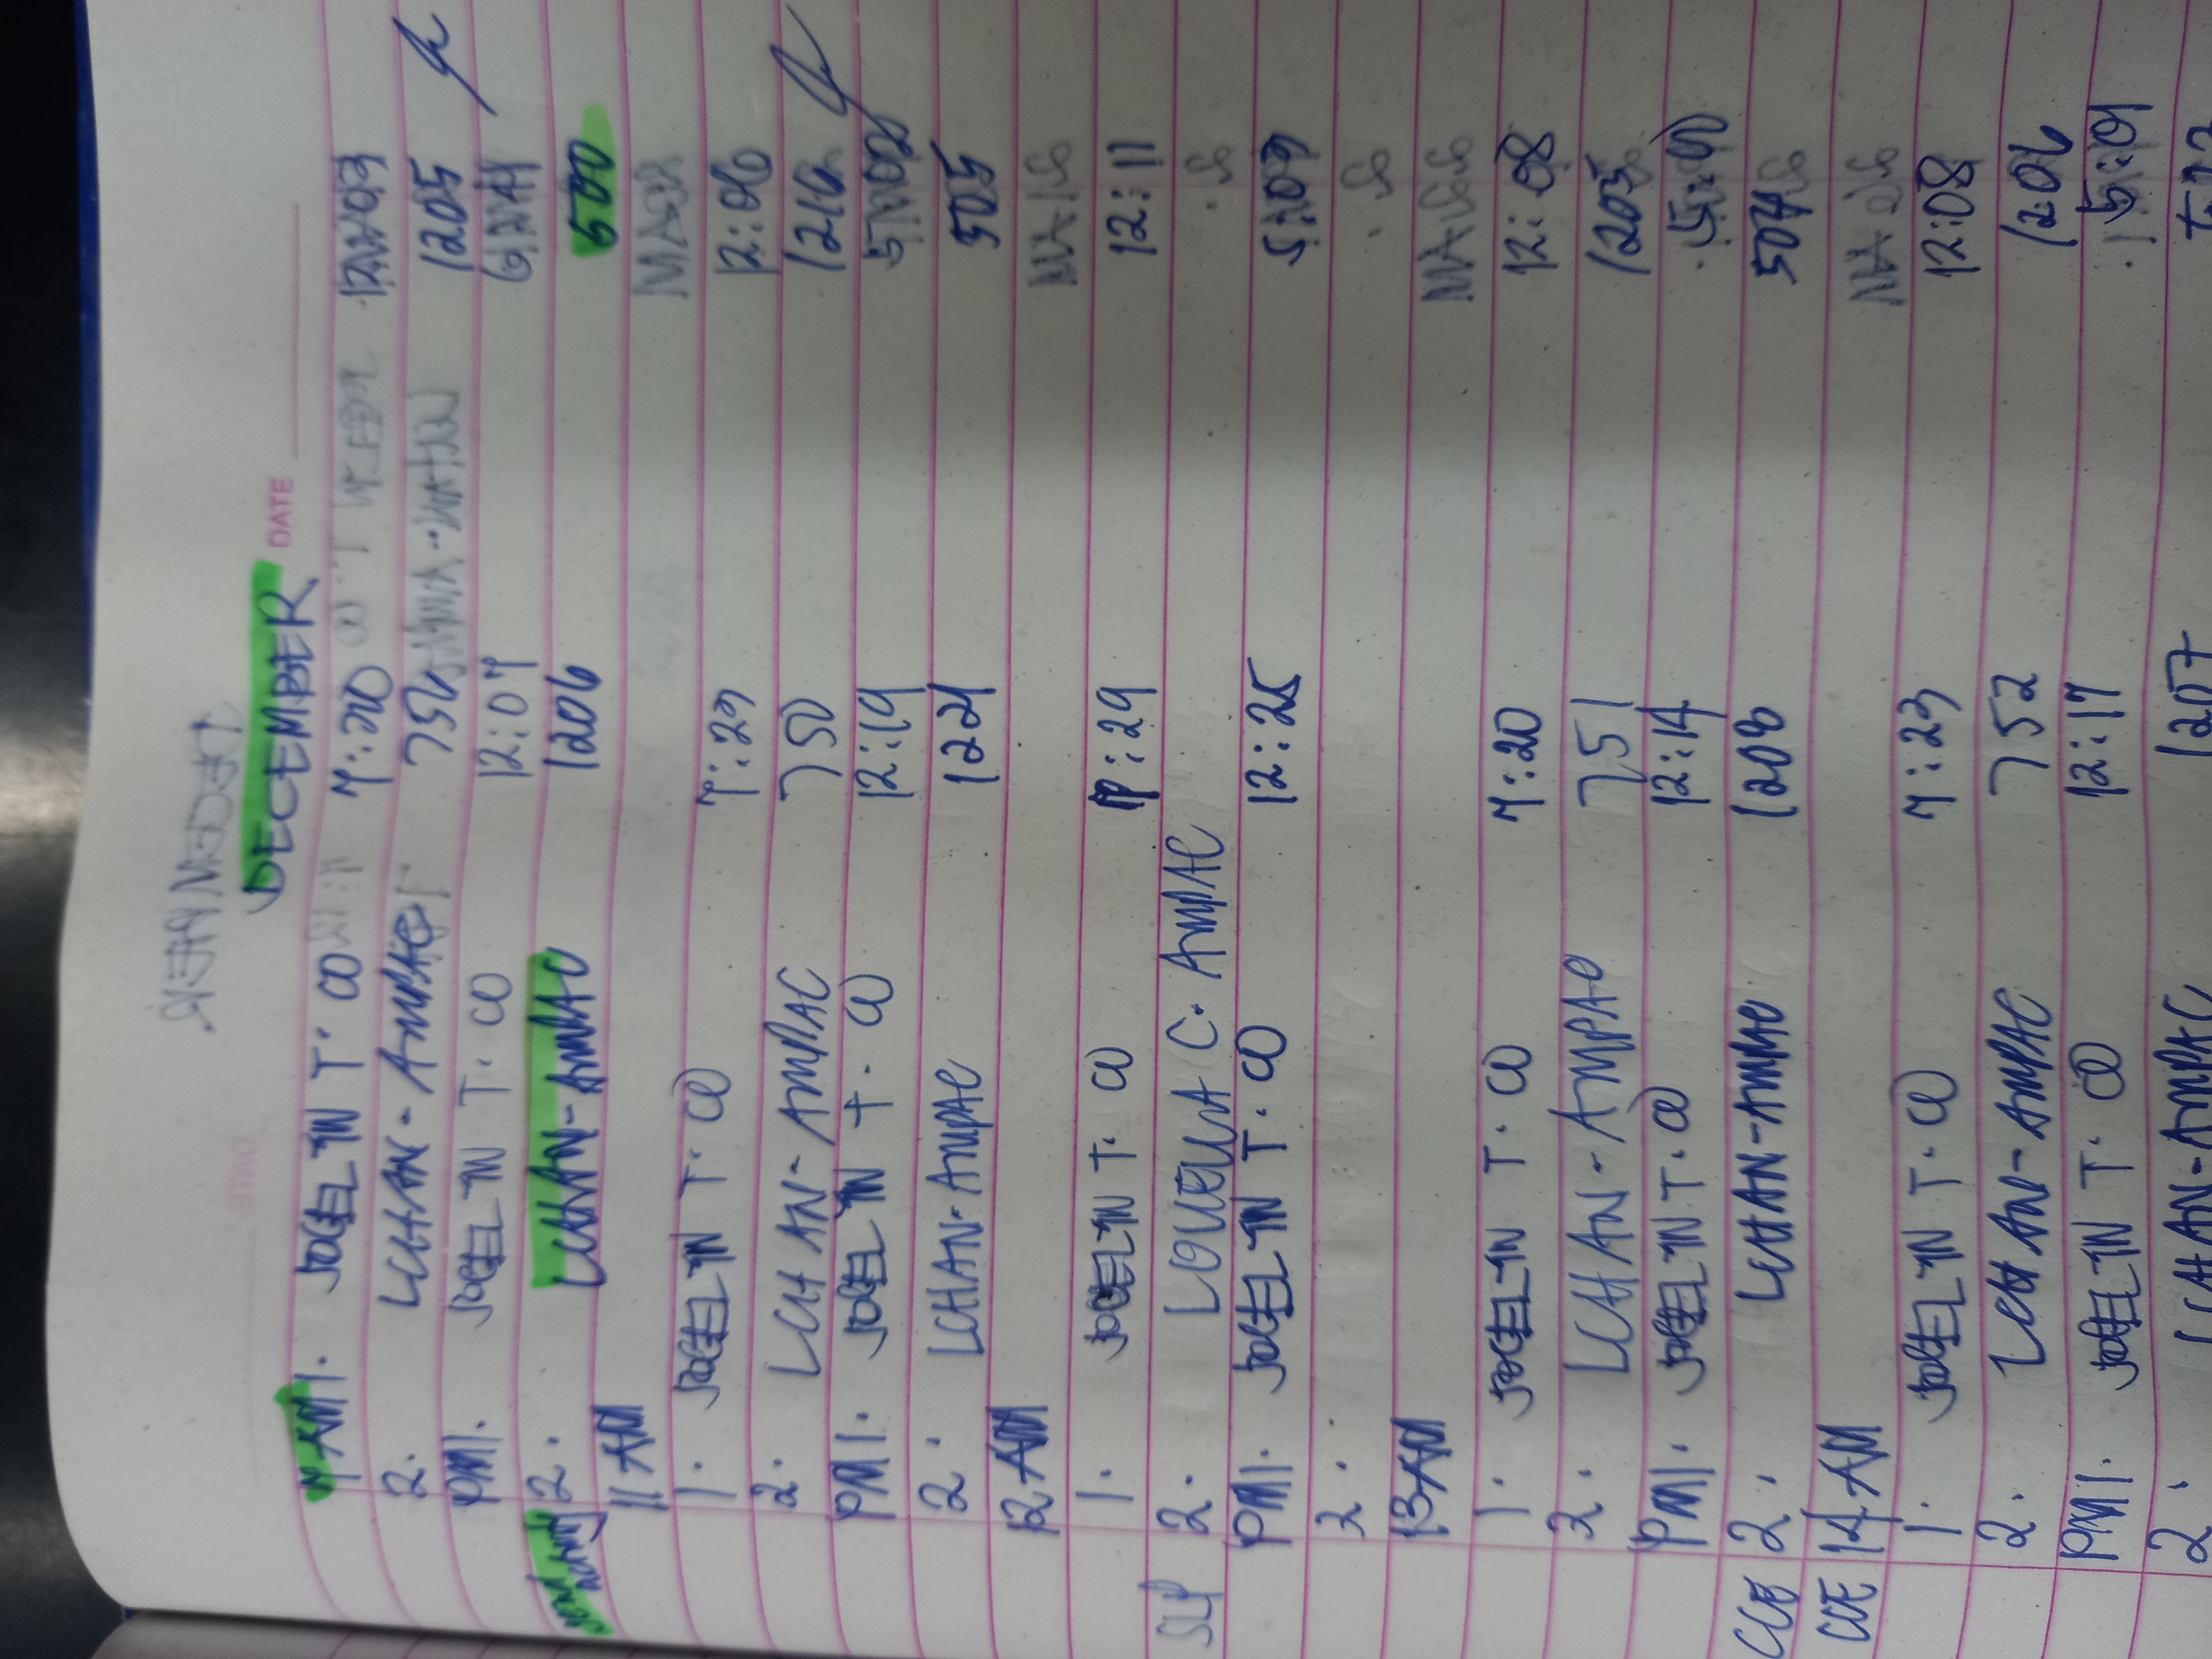 DECEMBER
DATE
AM 1. JOCELYN T. CO 7:20 12:03
2. LCHAN-AMPAC 754 1205
PM 1. JOCELYN T. CO 12:07
2. LCHAN-AMPAC 1206 500
11 AM
1. JOCELYN T. CO 7:23 12:06
2. LCHAN-AMPAC 750 1210
PM 1. JOCELYN T. CO 12:19 5:02
2. LCHAN-AMPAC 1221 505
12 AM
1. JOCELYN T. CO 7:29 12:11
SLP 2. LOUELLA C. AMPAC
PM 1. JOCELYN T. CO 12:25 5:09
2.
13 AM
1. JOCELYN T. CO 7:20 12:08
2. LCHAN-AMPAC 751 1205
PM 1. JOCELYN T. CO 12:14 5:01
2. LCHAN-AMPAC 1208 504
14 AM
1. JOCELYN T. CO 7:23 12:08
2. LCHAN-AMPAC 752 1206
PM 1. JOCELYN T. CO 12:17 5:01
2. LCHAN-AMPAC 1207